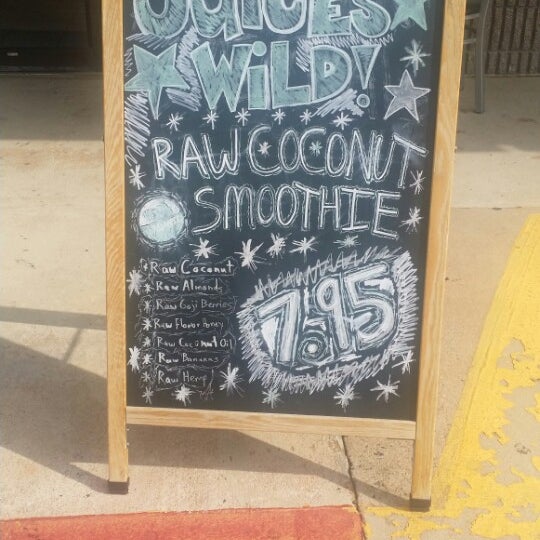 JUICES
WILD!
RAW COCONUT
SMOOTHIE
Raw Coconut
Raw Almonds
Raw Goji Berries
Raw Honey
Raw Coconut Oil
Raw Bananas
Raw Hemp
7.95